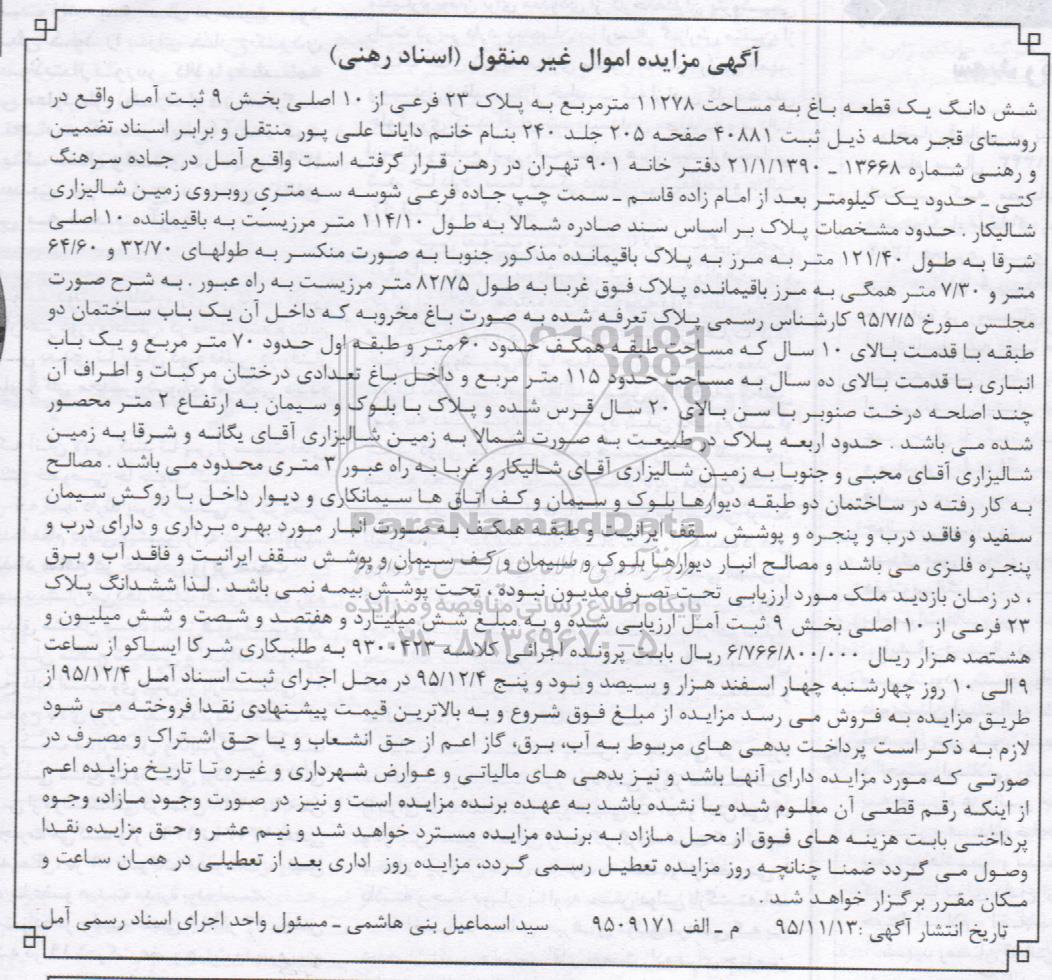 آگهی مزایده اموال غیر منقول (اسناد رهنی)
شش دانگ یک قطعه باغ به مساحت ۱۱۲۷۸ مترمربع به پلاک ۲۳ فرعی از ۱۰ اصلی بخش ۹ ثبت آمل واقع در
روستای قجر محله ذیل ثبت ۴۰۸۸۱ صفحه ۲۰۵ جلد ۲۴۰ بنام خانم دایانا علی پور منتقل و برابر اسناد تضمین
و رهنی شماره ۱۳۶۶۸ ـ ۲۱/۱/۱۳۹۰ دفتر خانه ۹۰۱ تهران در رهن قرار گرفته است واقع آمل در جاده سرهنگ
کتی ـ حدود یک کیلومتر بعد از امام زاده قاسم ـ سمت چپ جاده فرعی شیب سه متری روبروی زمین شالیزاری
شالیکار . حدود مشخصات پلاک بر اساس سند صادره شمالا به طول ۱۱۴/۱۰ متر مرزیست به باقیمانده ۱۰ اصلی
شرقا به طول ۱۲۱/۴۰ متر به مرز به پلاک باقیمانده مذکور جنوبا به صورت منکسر به طولهای ۳۲/۷۰ و ۶۴/۶۰
متر و ۷/۳۰ متر همگی به مرز باقیمانده پلاک فوق غربا به طول ۸۲/۷۵ متر مرزیست به راه عبور . به شرح صورت
مجلس مورخ ۹۵/۷/۵ کارشناس رسمی پلاک تعرفه شده به صورت باغ مخروبه که داخل آن یک باب ساختمان دو
طبقه با قدمت بالای ۱۰ سال که مساحت طبقه همکف حدود ۶۰ متر و طبقه اول حدود ۷۰ متر مربع و یک باب
انباری با قدمت بالای ده سال به مساحت حدود ۱۱۵ متر مربع و داخل باغ تعدادی درختان مرکبات و اطراف آن
چند اصله درخت صنوبر با سن بالای ۲۰ سال غرس شده و پلاک با بلوک و سیمان به ارتفاع ۲ متر محصور
شده می باشد . حدود اربعه پلاک در طبیعت به صورت شمالا به زمین شالیزاری آقای یگانه و شرقا به زمین
شالیزاری آقای محبی و جنوبا به زمین شالیزاری آقای شالیکار و غربا به راه عبور ۳ متری محدود می باشد . مصالح
به کار رفته در ساختمان دو طبقه دیوارها بلوک و سیمان و کف اتاق ها سیمانکاری و دیوار داخل با روکش سیمان
سفید و فاقد درب و پنجره و پوشش سقف ایرانیت و متروکه می باشد . در صورت انبار مورد بهره برداری و دارای درب و
پنجره فلزی می باشد و مصالح انبار دیوارها بلوک و سیمان و کف سیمان و پوشش سقف ایرانیت و فاقد آب و برق
، در زمان بازدید ملک مورد ارزیابی تحت تصرف مدیون نبوده ، تحت پوشش بیمه نمی باشد . لذا ششدانگ پلاک
۲۳ فرعی از ۱۰ اصلی بخش ۹ ثبت آمل ارزیابی شده و به مبلغ شش میلیارد و هفتصد و شصت و شش میلیون و
هشتصد هزار ریال ۶/۷۶۶/۸۰۰/۰۰۰ ریال بابت پرونده اجرائی کلاسه ۹۳۰۰۴۲۳ به طلبکاری شرکا ایساکو از ساعت
۹ الی ۱۰ روز چهارشنبه چهار اسفند هزار و سیصد و نود و پنج ۹۵/۱۲/۴ در محل اجرای ثبت اسناد آمل ۹۵/۱۲/۴ از
طریق مزایده به فروش می رسد مزایده از مبلغ فوق شروع و به بالاترین قیمت پیشنهادی نقدا فروخته می شود
لازم به ذکر است پرداخت بدهی های مربوط به آب، برق، گاز اعم از حق انشعاب و یا حق اشتراک و مصرف در
صورتی که مورد مزایده دارای آنها باشد و نیز بدهی های مالیاتی و عوارض شهرداری و غیره تا تاریخ مزایده اعم
از اینکه رقم قطعی آن معلوم شده یا نشده باشد به عهده برنده مزایده است و نیز در صورت وجود مازاد وجوه
پرداختی بابت هزینه های فوق از محل مازاد به برنده مزایده مسترد خواهد شد و نیم عشر و حق مزایده نقدا
وصول می گردد ضمنا چنانچه روز مزایده تعطیل رسمی گردد، مزایده روز اداری بعد از تعطیلی در همان ساعت و
مکان مقرر برگزار خواهد شد.
تاریخ انتشار آگهی :۹۵/۱۱/۱۳ م ـ الف ۹۵۰۹۱۷۱ سیداسماعیل بنی هاشمی ـ مسئول واحد اجرای اسناد رسمی آمل
ParsNamadData
پایگاه اطلاع رسانی مناقصه و مزایده
۰۲۱-۸۸۳۴۹۶۷۰-۵